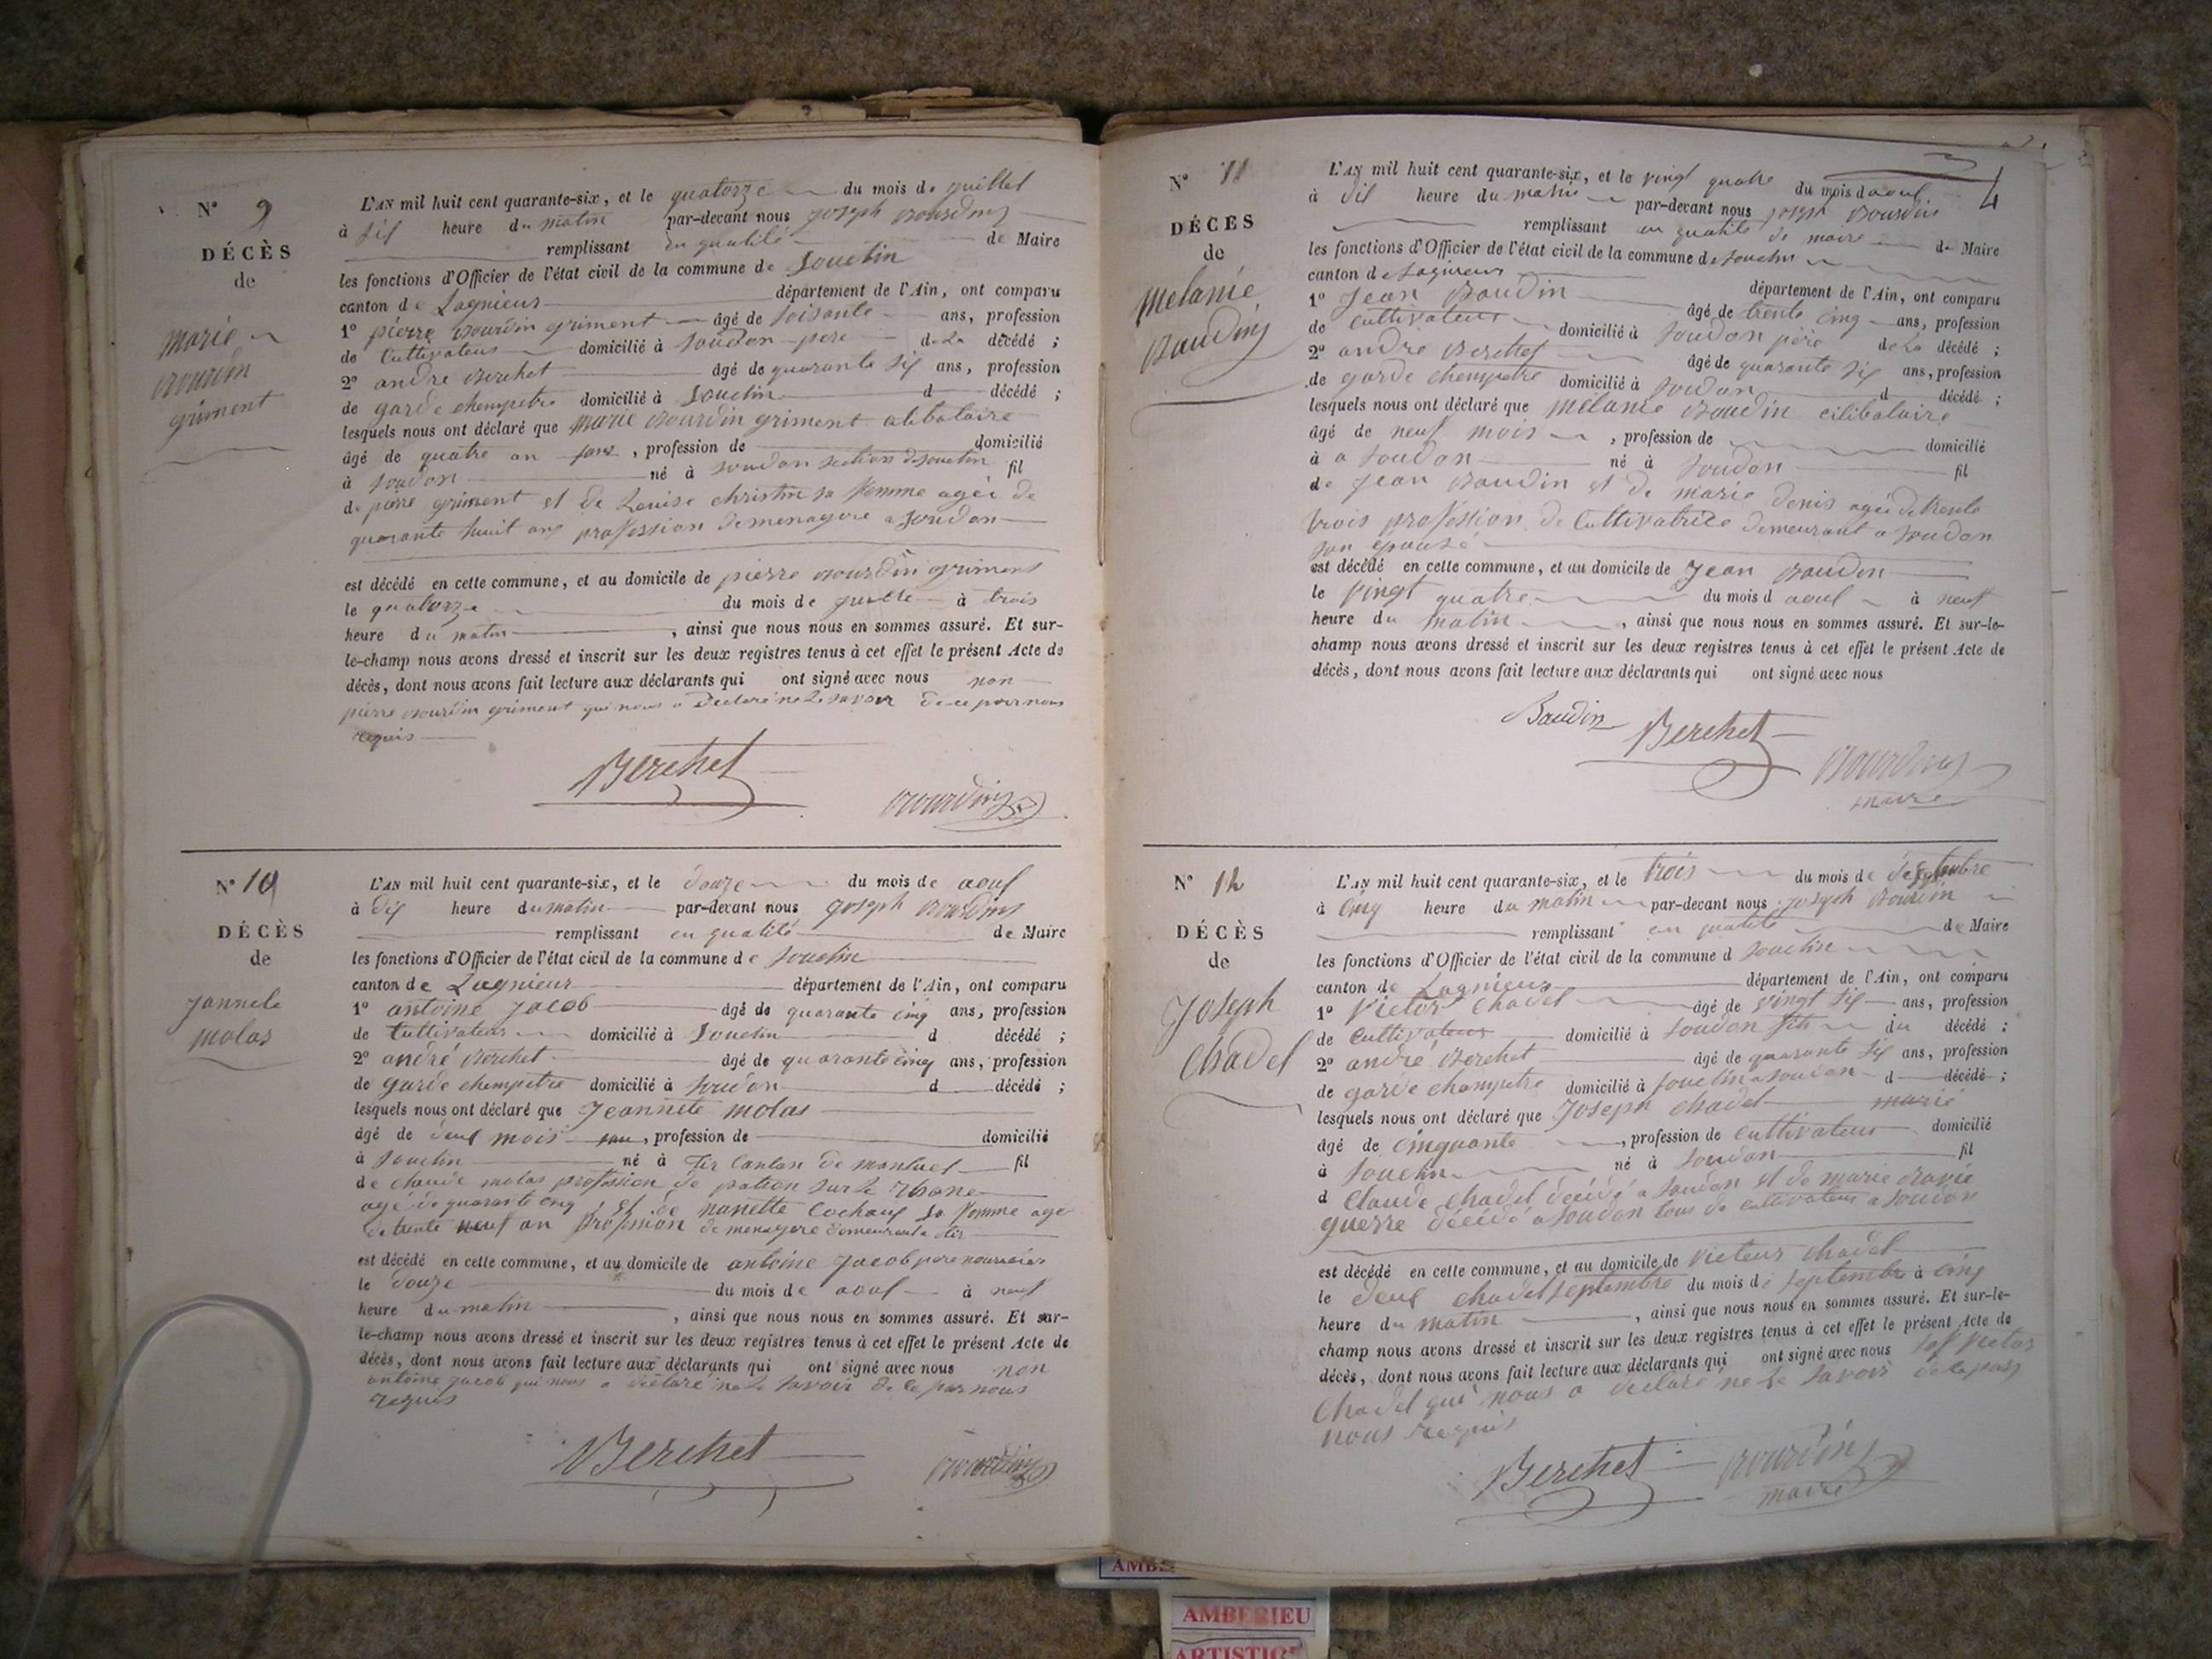 N° 9
DÉCÈS
de
marie
Bourdin
griment
L'AN mil huit cent quarante-six, et le quatorze du mois de juillet
à six heure du matin par-devant nous joseph Bourdin
remplissant en qualité de Maire
les fonctions d'Officier de l'état civil de la commune de Souclin
canton de Lagnieux département de l'Ain, ont comparu
1° pierre Bourdin griment âgé de soisante ans, profession
de Cultivateur domicilié à Soudon pere de La décédé ;
2° andre Berchet âgé de quarante six ans, profession
de garde chempetre domicilié à Souclin d décédé ;
lesquels nous ont déclaré que marie Bourdin griment
âgé de quatre an , profession de domicilié
à Soudon né à Soudon section de Souclin fil
de pierre griment et de Louise christin sa femme agée de
quarante huit ans profession de menagere a Soudon
est décédé en cette commune, et au domicile de pierre Bourdin griment
le quatorze du mois de à trois
heure du matin , ainsi que nous nous en sommes assuré. Et sur-
le-champ nous avons dressé et inscrit sur les deux registres tenus à cet effet le présent Acte de
décès, dont nous avons fait lecture aux déclarants qui ont signé avec nous non
pierre Bourdin griment qui nous a Declaré ne Le savoir de ce par nous
requis
Berchet
Bourdin
N° 10
DÉCÈS
de
Jannete
molas
L'AN mil huit cent quarante-six, et le douze du mois de aout
à dix heure du matin par-devant nous joseph Bourdin
remplissant en qualité de Maire
les fonctions d'Officier de l'état civil de la commune de Souclin
canton de Lagnieux département de l'Ain, ont comparu
1° antoine jacob âgé de quarante cinq ans, profession
de Cultivateur domicilié à Souclin d décédé ;
2° andré Berchet âgé de quarante cinq ans, profession
de garde chempetre domicilié à Soudon d décédé ;
lesquels nous ont déclaré que Jeannete molas
âgé de deux mois , profession de domicilié
à Souclin né à Canton de montuel fil
de claude molas profession de patron sur le Rhone
agé de quarante cinq, et de nanette Cochaux sa femme age
de trente neuf an profession de menagere demeurant a
est décédé en cette commune, et au domicile de antoine jacob pere nourricier
le douze du mois de aout à neuf
heure du matin , ainsi que nous nous en sommes assuré. Et sur-
le-champ nous avons dressé et inscrit sur les deux registres tenus à cet effet le présent Acte de
décès, dont nous avons fait lecture aux déclarants qui ont signé avec nous non
antoine jacob qui nous a déclaré ne Le savoir de Ce par nous
requis
Berchet
Bourdin
4
N° 11
DÉCÈS
de
Melanie
Baudin
L'AN mil huit cent quarante-six, et le vingt quatre du mois d aout
à dix heure du matin par-devant nous joseph Bourdin
remplissant en qualité de maire de Maire
les fonctions d'Officier de l'état civil de la commune de Souclin
canton de Lagnieux département de l'Ain, ont comparu
1° Jean Baudin âgé de trente cinq ans, profession
de Cultivateur domicilié à Soudon père de La décédé ;
2° andre Berchet âgé de quarante six ans, profession
de garde chempetre domicilié à Soudon d décédé ;
lesquels nous ont déclaré que mélanie Baudin cilibataire
âgé de neuf mois , profession de domicilié
à a Soudon né à Soudon fil
de Jean Baudin et de marie denis agée de trente
trois profession de Cultivatrice demeurant a Soudon
son épousé
est décédé en cette commune, et au domicile de Jean Baudin
le vingt quatre du mois d aout à neuf
heure du matin , ainsi que nous nous en sommes assuré. Et sur-le-
champ nous avons dressé et inscrit sur les deux registres tenus à cet effet le présent Acte de
décès, dont nous avons fait lecture aux déclarants qui ont signé avec nous
Baudin
Berchet
Bourdin
maire
N° 12
DÉCÈS
de
Joseph
Chadel
L'AN mil huit cent quarante-six, et le trois du mois de septembre
à cinq heure du matin par-devant nous joseph Bourdin
remplissant en qualité de Maire
les fonctions d'Officier de l'état civil de la commune d Souclin
canton de Lagnieux département de l'Ain, ont comparu
1° Victor Chadel âgé de vingt six ans, profession
de Cultivateur domicilié à Soudon fils du décédé ;
2° andré Berchet âgé de quarante six ans, profession
de garde champetre domicilié à Souclin a Soudon d décédé ;
lesquels nous ont déclaré que Joseph Chadel marié
âgé de cinquante , profession de cultivateur domicilié
à Souclin né à Soudon fil
d Claude Chadel décédé a Soudon et de marie
guerre décédé a Soudon tous de cultivateur a Soudon
est décédé en cette commune, et au domicile de Victeur Chadel
le deux Chadel septembre du mois de septembre à cinq
heure du matin , ainsi que nous nous en sommes assuré. Et sur-le-
champ nous avons dressé et inscrit sur les deux registres tenus à cet effet le présent Acte de
décès, dont nous avons fait lecture aux déclarants qui ont signé avec nous Victor
Chadel qui nous a déclaré ne Le savoir de Ce par
nous requis
Berchet
Bourdin
maire
AMBERIEU
ARTISTIQ